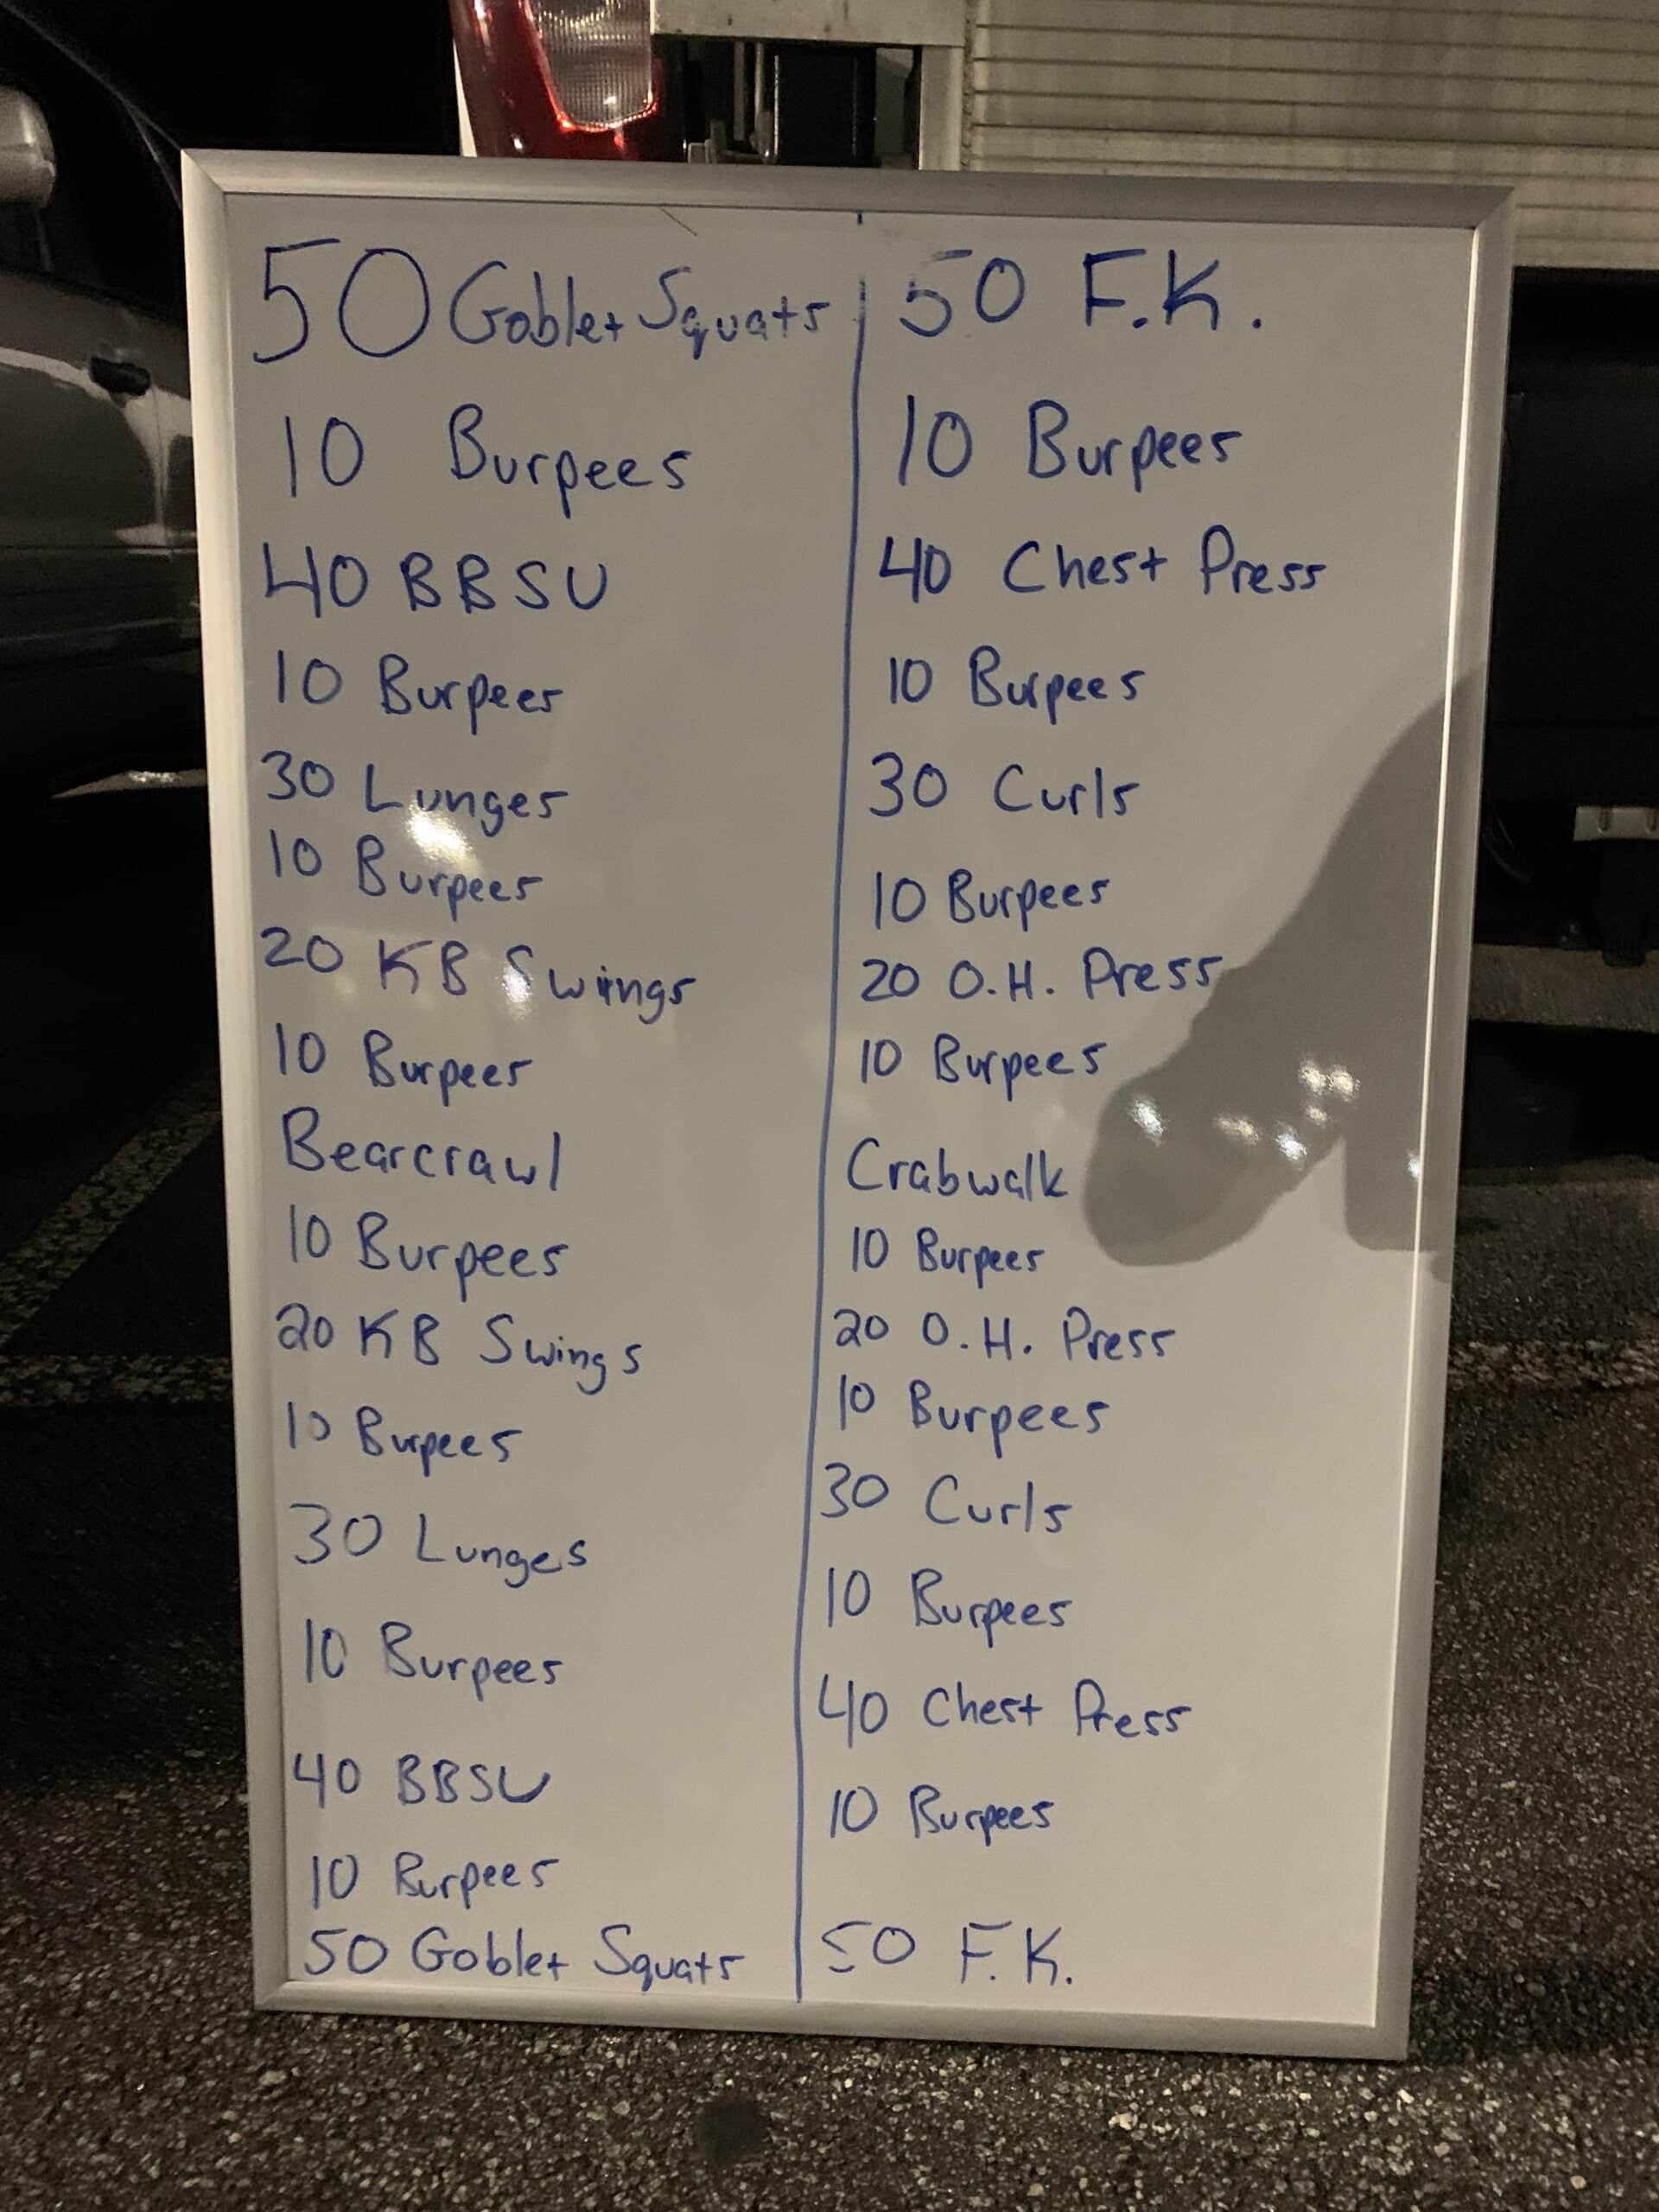 50 Goblet Squats
10 Burpees
40 BBSU
10 Burpees
30 Lunges
10 Burpees
20 KB Swings
10 Burpees
Bearcrawl
10 Burpees
20 KB Swings
10 Burpees
30 Lunges
10 Burpees
40 BBSU
10 Burpees
50 Goblet Squats
50 F.K.
10 Burpees
40 Chest Press
10 Burpees
30 Curls
10 Burpees
20 O.H. Press
10 Burpees
Crabwalk
10 Burpees
20 O.H. Press
10 Burpees
30 Curls
10 Burpees
40 Chest Press
10 Burpees
50 F.K.